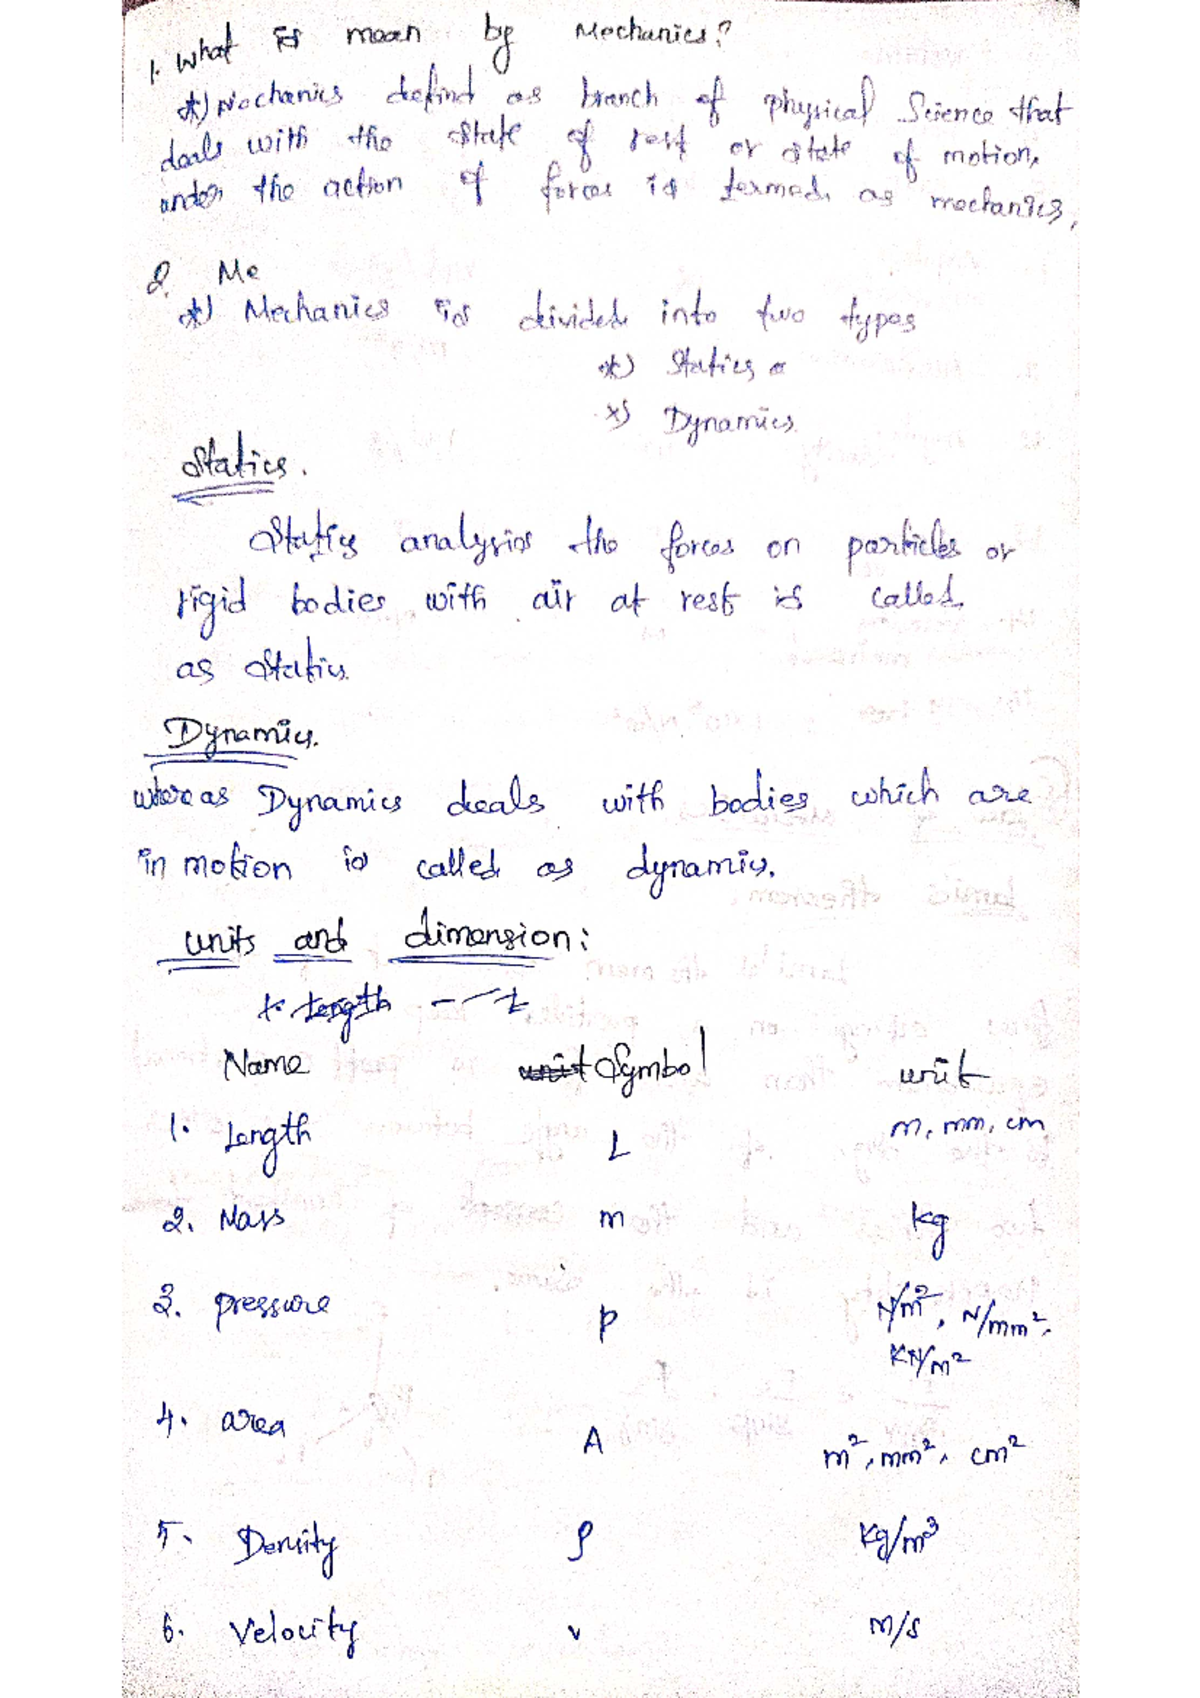 1. What is mean by Mechanics?
*) Mechanics defind as branch of physical Science that
deals with the state of rest or state of motion,
under the action of forces is termed as mechanics,
2. Me
*) Mechanics is divided into two types
*) Statics
*) Dynamics.
Statics.
Statics analysis the forces on particles or
rigid bodies with air at rest is called.
as Statics.
Dynamics.
whereas Dynamics deals with bodies which are
in motion is called as dynamics.
units and dimension:
Length - L
Name unit Symbol unit
1. Length L m, mm, cm
2. Mass m kg
3. pressure P N/m², N/mm²,
KN/m²
4. area A m², mm², cm²
5. Density ρ kg/m³
6. Velocity v m/s